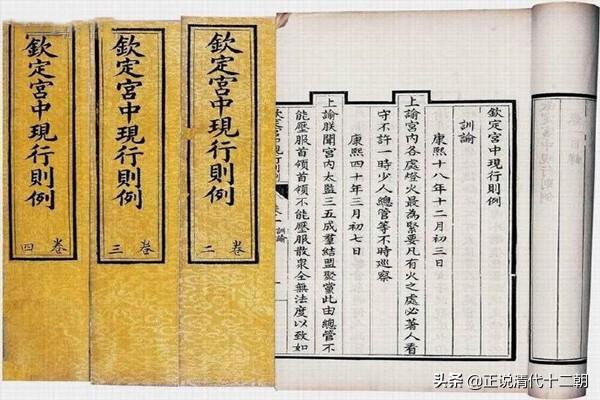 欽定宮中現行則例
訓諭
康熙十八年十二月初三日
上諭宮內各處燈火最為緊要凡有火之處必著人看
守不許一時少人總管等不時巡察
康熙四十年三月初七日
上諭朕聞宮內太監三五成羣結盟聚黨此由總管不
能壓服首領首領不能壓服散衆全無法度以致如
宮中現行則例
訓諭
欽定宮中現行則例
卷二
欽定宮中現行則例
卷三
欽定宮中現行則例
卷四
头条 @正说清代十二朝